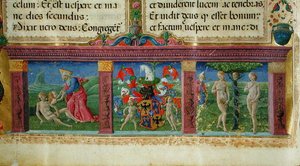 celum: Et est uespere et ma
ne dies secundus:
Dixit uero deus: Congregẽt
ac diuiderent lucem ac tenebras,
Et uidit deus qꝫ esset bonum:
et factum uespere et mane: di